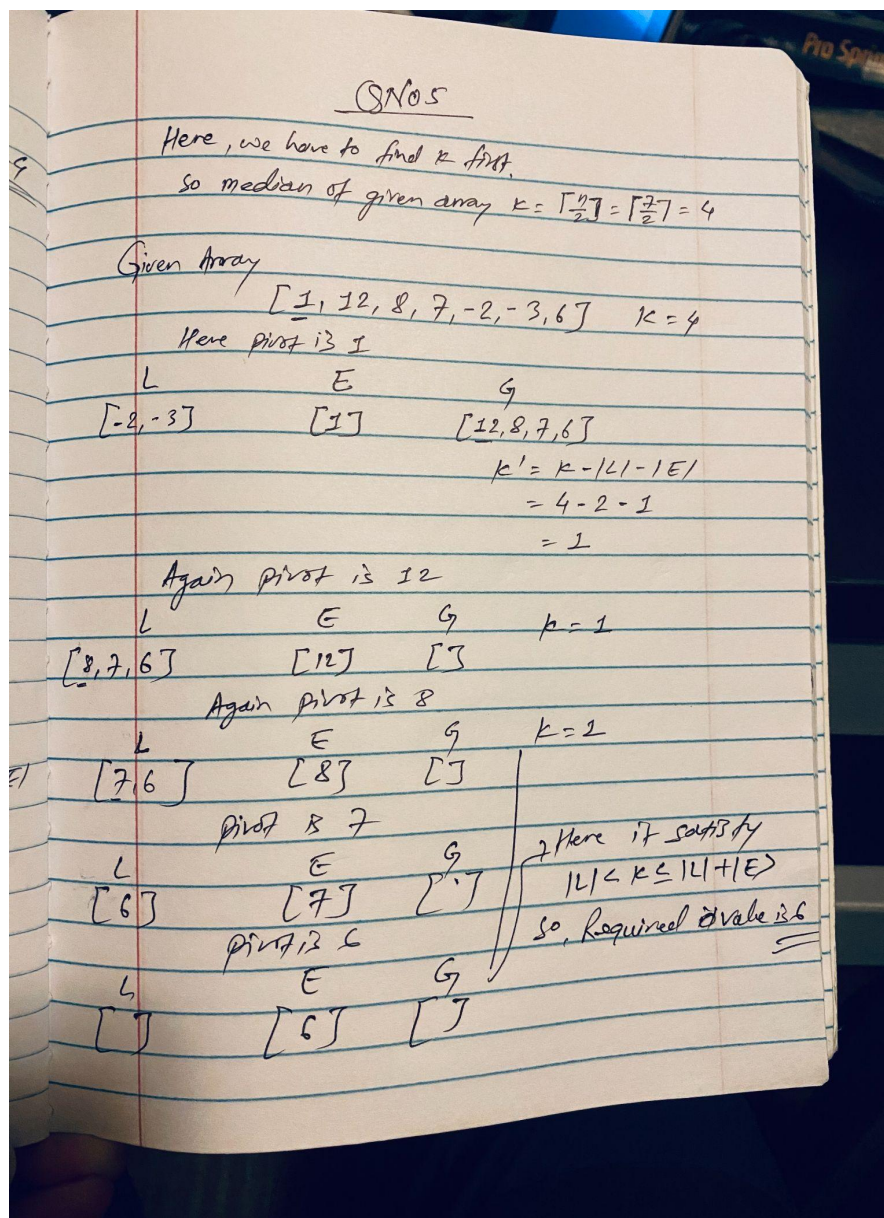 Pro Sp
QNo5
Here, we have to find k first.
So median of given array k = ⌈n/2⌉ = ⌈7/2⌉ = 4
Given Array
[1, 12, 8, 7, -2, -3, 6] K = 4
Here pivot is 1
L E G
[-2, -3] [1] [12, 8, 7, 6]
k' = k - |L| - |E|
= 4 - 2 - 1
= 1
Again pivot is 12
L E G k = 1
[8, 7, 6] [12] []
Again pivot is 8
L E G k = 1
[7, 6] [8] []
pivot is 7
L E G
[6] [7] []
pivot is 6
L E G
[ ] [6] [ ]
Here it satisfy
|L| < k ≤ |L| + |E|
So, Required value is 6